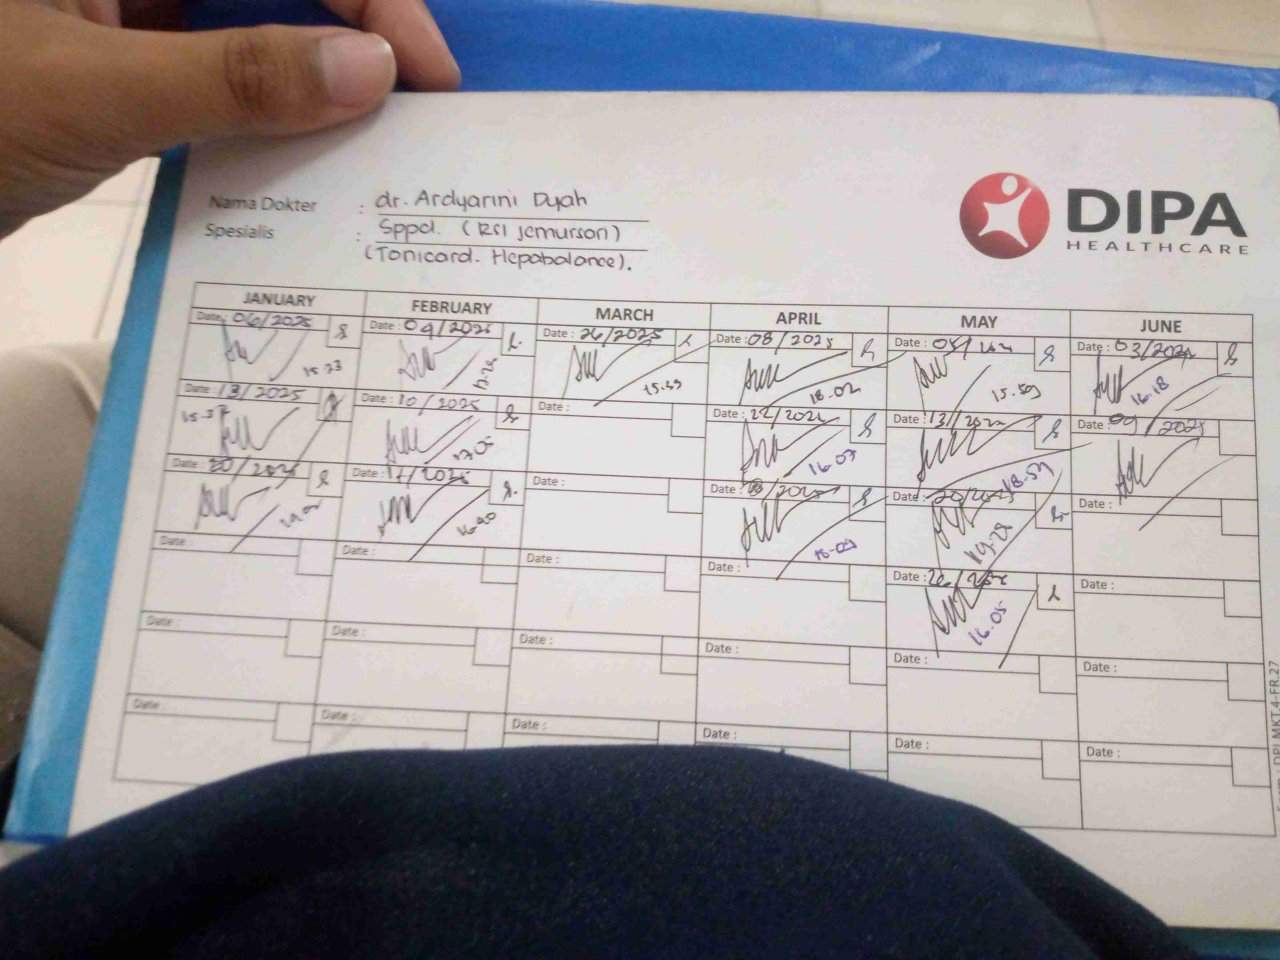 Nama Dokter : dr. Ardyarini Dyah
Spesialis : Sppd. (RSI jemursari)
(Tonicard. Hepabalance).
DIPA
HEALTHCARE
JANUARY FEBRUARY MARCH APRIL MAY JUNE
Date: 06/2025 Date: 04/2025 Date: 26/2025 Date: 08/2025 Date: Date: 03/2025
15.23 15.49 18.02 15.59 16.18
Date: 13/2025 Date: 10/2025 Date: Date: 22/2025 Date: 13/2025 Date: 09/2025
15.37 17.05 16.07 18.59
Date: 20/2025 Date: 17/2025 Date: Date: Date: 20/2025 Date:
16.40 19.28
Date: Date: Date: Date: Date: Date:
16.05
Date: Date: Date: Date: Date: Date:
Date: Date: Date: Date: Date: Date: